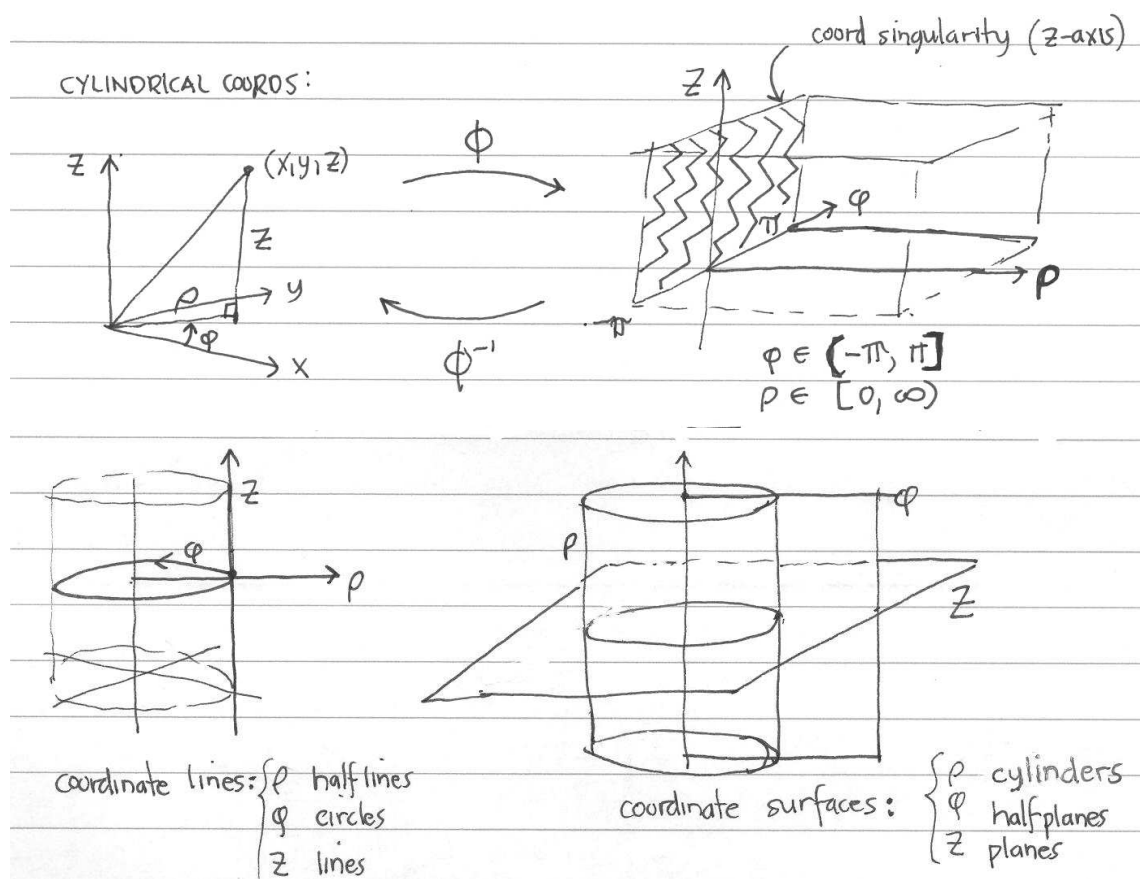 coord singularity (z-axis)
CYLINDRICAL COORDS:
Z
(x,y,z)
Z
ρ
y
φ
x
Φ
Φ⁻¹
Z
π
φ
ρ
-π
φ ∈ (-π, π]
ρ ∈ [0, ∞)
Z
φ
ρ
φ
ρ
Z
coordinate lines: { ρ halflines
φ circles
Z lines
coordinate surfaces: { ρ cylinders
φ halfplanes
Z planes